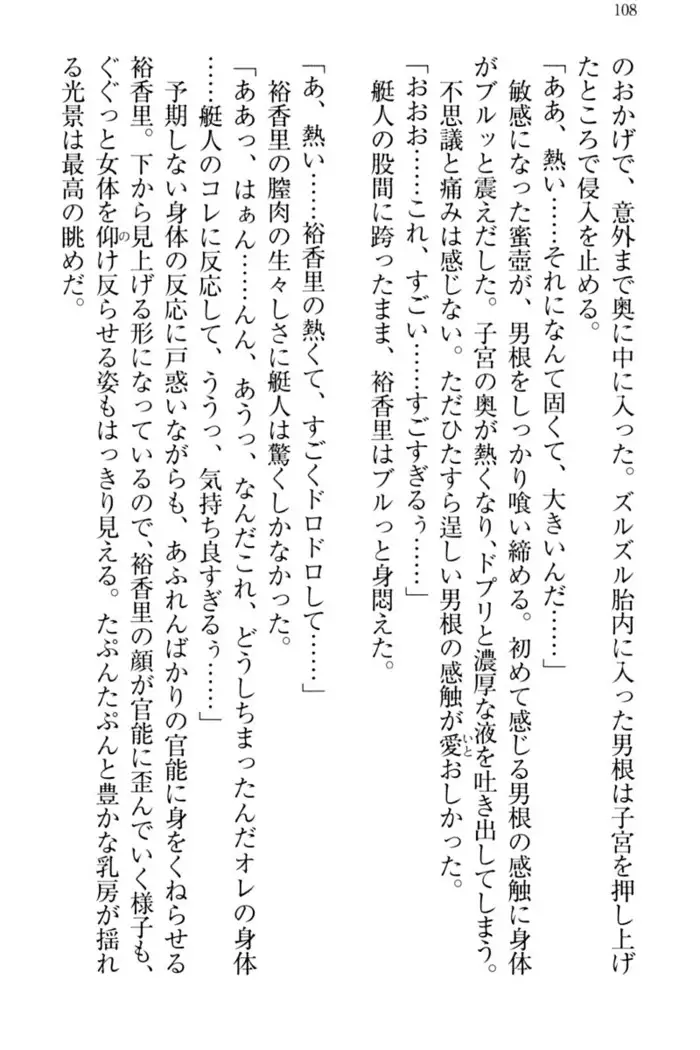 108
のおかげで、意外まで奥に中に入った。ズルズル胎内に入った男根は子宮を押し上げ
たところで侵入を止める。
「ああ、熱い……それになんて固くて、大きいんだ……」
敏感になった蜜壺が、男根をしっかり喰い締める。初めて感じる男根の感触に身体
がブルッと震えだした。子宮の奥が熱くなり、ドプリと濃厚な液を吐き出してしまう。
不思議と痛みは感じない。ただひたすら逞しい男根の感触が愛おしかった。
「おおお……これ、すごい……すごすぎるぅ……」
艇人の股間に跨ったまま、裕香里はブルっと身悶えた。
「あ、熱い……裕香里の熱くて、すごくドロドロして……」
裕香里の膣肉の生々しさに艇人は驚くしかなかった。
「ああっ、はぁん……んん、あうっ、なんだこれ、どうしちまったんだオレの身体
……艇人のコレに反応して、ううっ、気持ち良すぎるぅ……」
予期しない身体の反応に戸惑いながらも、あふれんばかりの官能に身をくねらせる
裕香里。下から見上げる形になっているので、裕香里の顔が官能に歪んでいく様子も、
ぐぐっと女体を仰け反らせる姿もはっきり見える。たぷんたぷんと豊かな乳房が揺れ
る光景は最高の眺めだ。